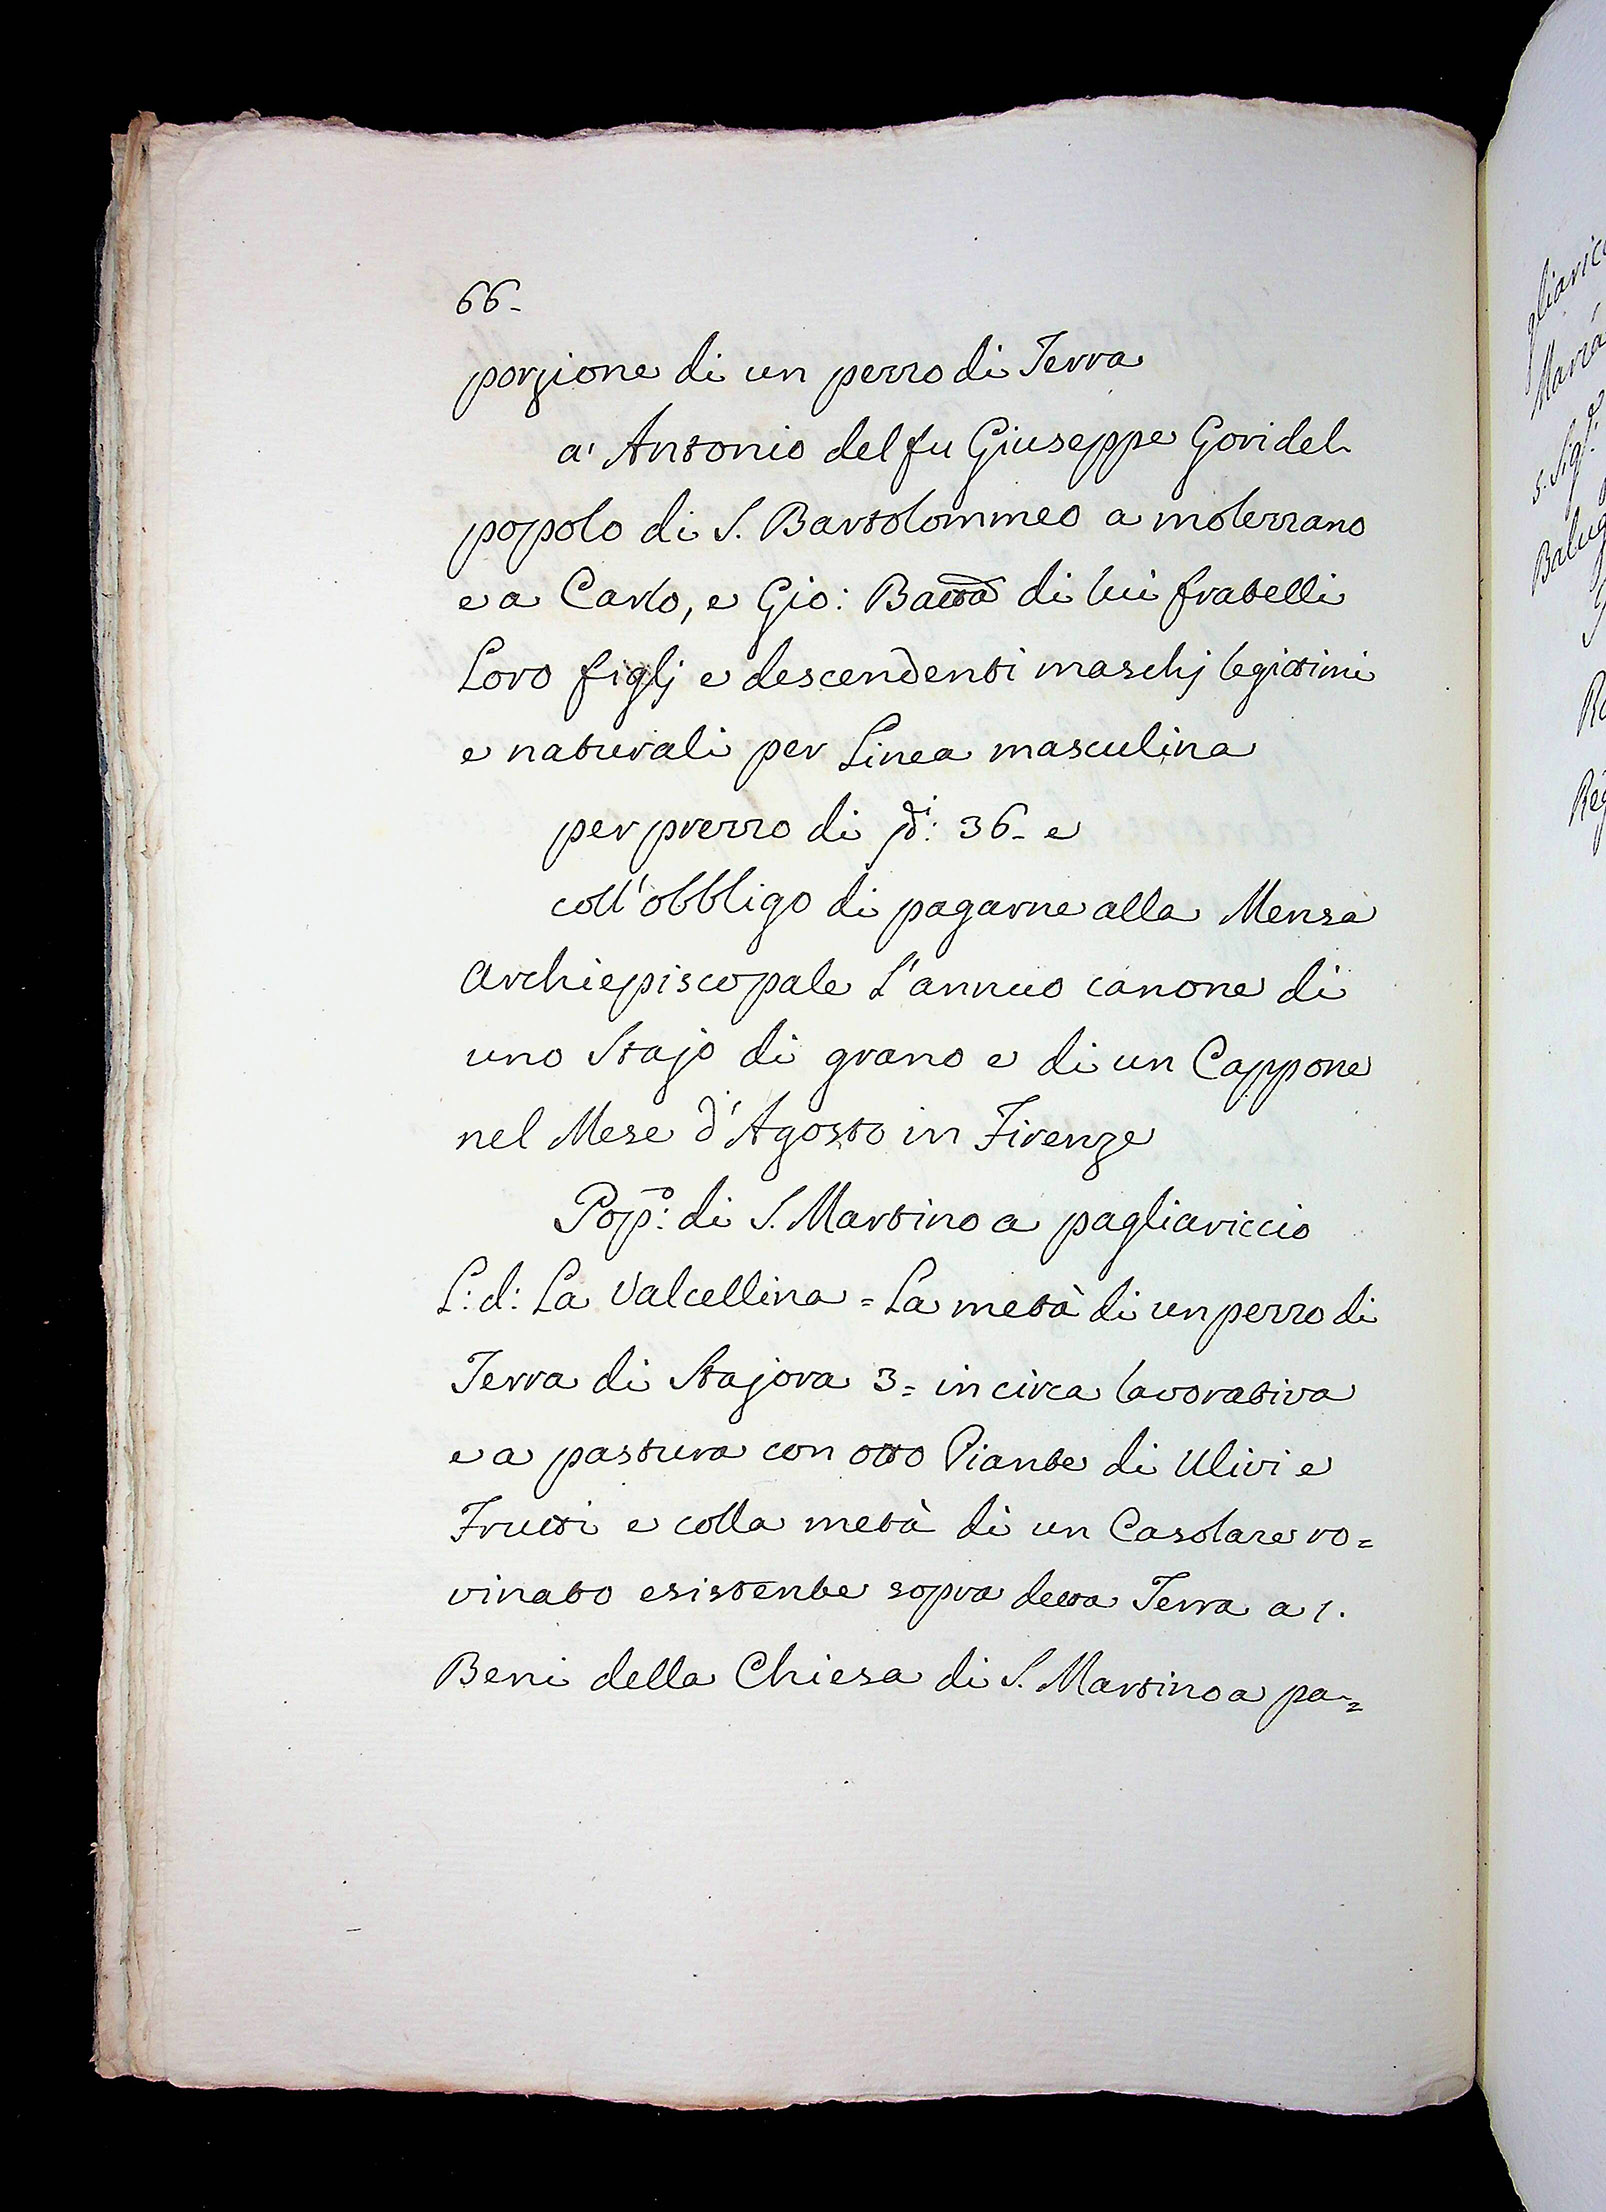 66-
porzione di un pezzo di Terra
a' Antonio del fu Giuseppe Gori del
popolo di S. Bartolommeo a molezzano
e a Carlo, e Gio: Batta di lui fratelli
Loro figlj e descendenti maschj legittimi
e naturali per Linea masculina
per prezzo di 36- e
coll'obbligo di pagarne alla Mensa
Archiepiscopale L'annuo canone di
uno Stajo di grano e di un Cappone
nel Mese d'Agosto in Firenze
Popo: di S. Martino a pagliariccio
L: d: La Valcellina = La metà di un pezzo di
Terra di Stajora 3= in circa lavorativa
e a pastura con otto Piante di Ulivi e
Frutti e colla metà di un Casolare ro=
vinato esistente sopra detta Terra a 1.
Beni della Chiesa di S. Martino a pa=
gliaricc
Maria
s. Sig.
Balug
Ro
Reg